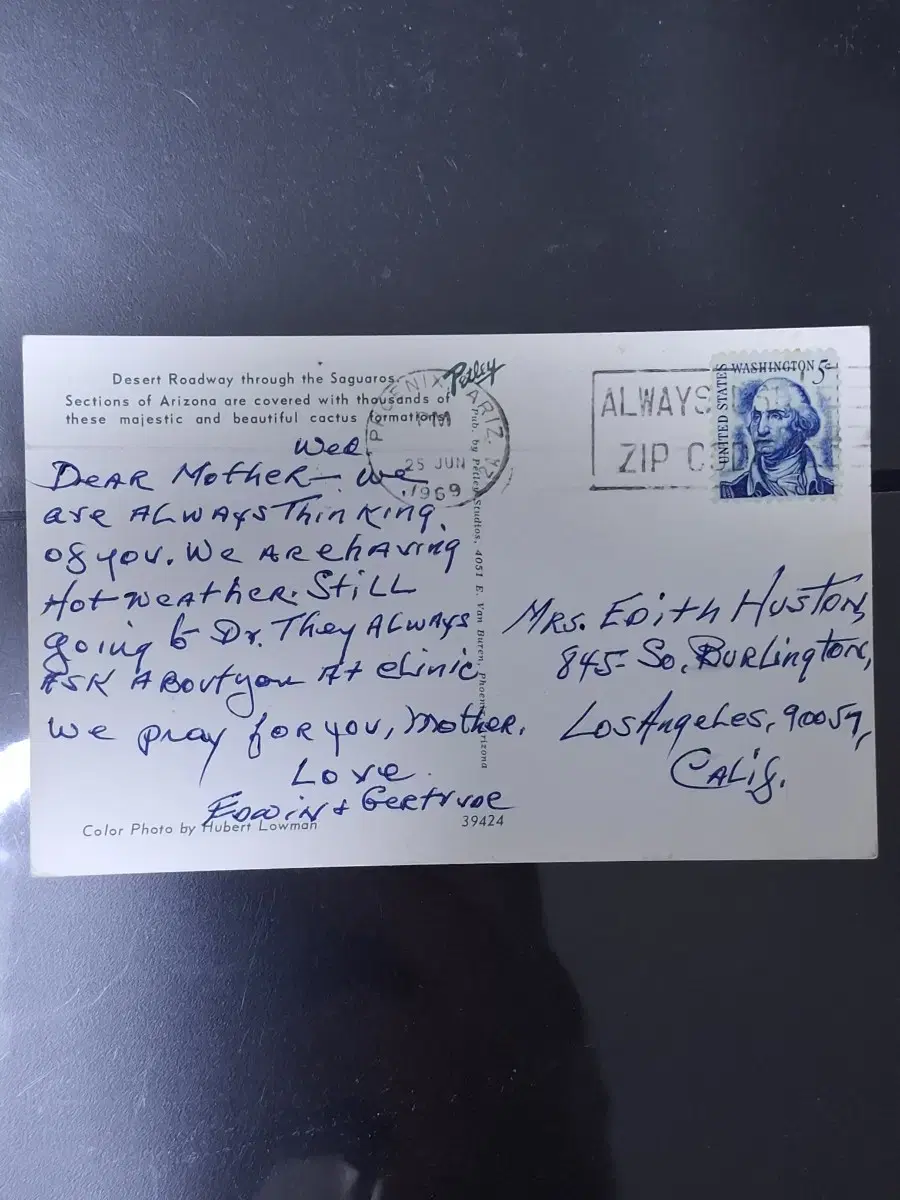 Desert Roadway through the Saguaros.
Sections of Arizona are covered with thousands of
these majestic and beautiful cactus formations.
Petley
PHOENIX ARIZ.
PM
25 JUN
1969
ALWAYS
ZIP CODE
UNITED STATES
WASHINGTON 5c
Wed
DEAR MOTHER - we
are ALWAYS Thinking
of you. We ARe hAving
Hot weATher. STiLL
going to Dr. They ALWAYS
ASK ABout you AT clinic
We pray foR you, MotHer.
Love
EDwin & GeRTRUDe
Pub. by Petley Studios, 4051 E. Van Buren, Phoenix, Arizona
MRS. EDiTH HUSTON,
845 So. BURLingTon,
Los AngeLes, 90057,
CALif.
Color Photo by Hubert Lowman
39424